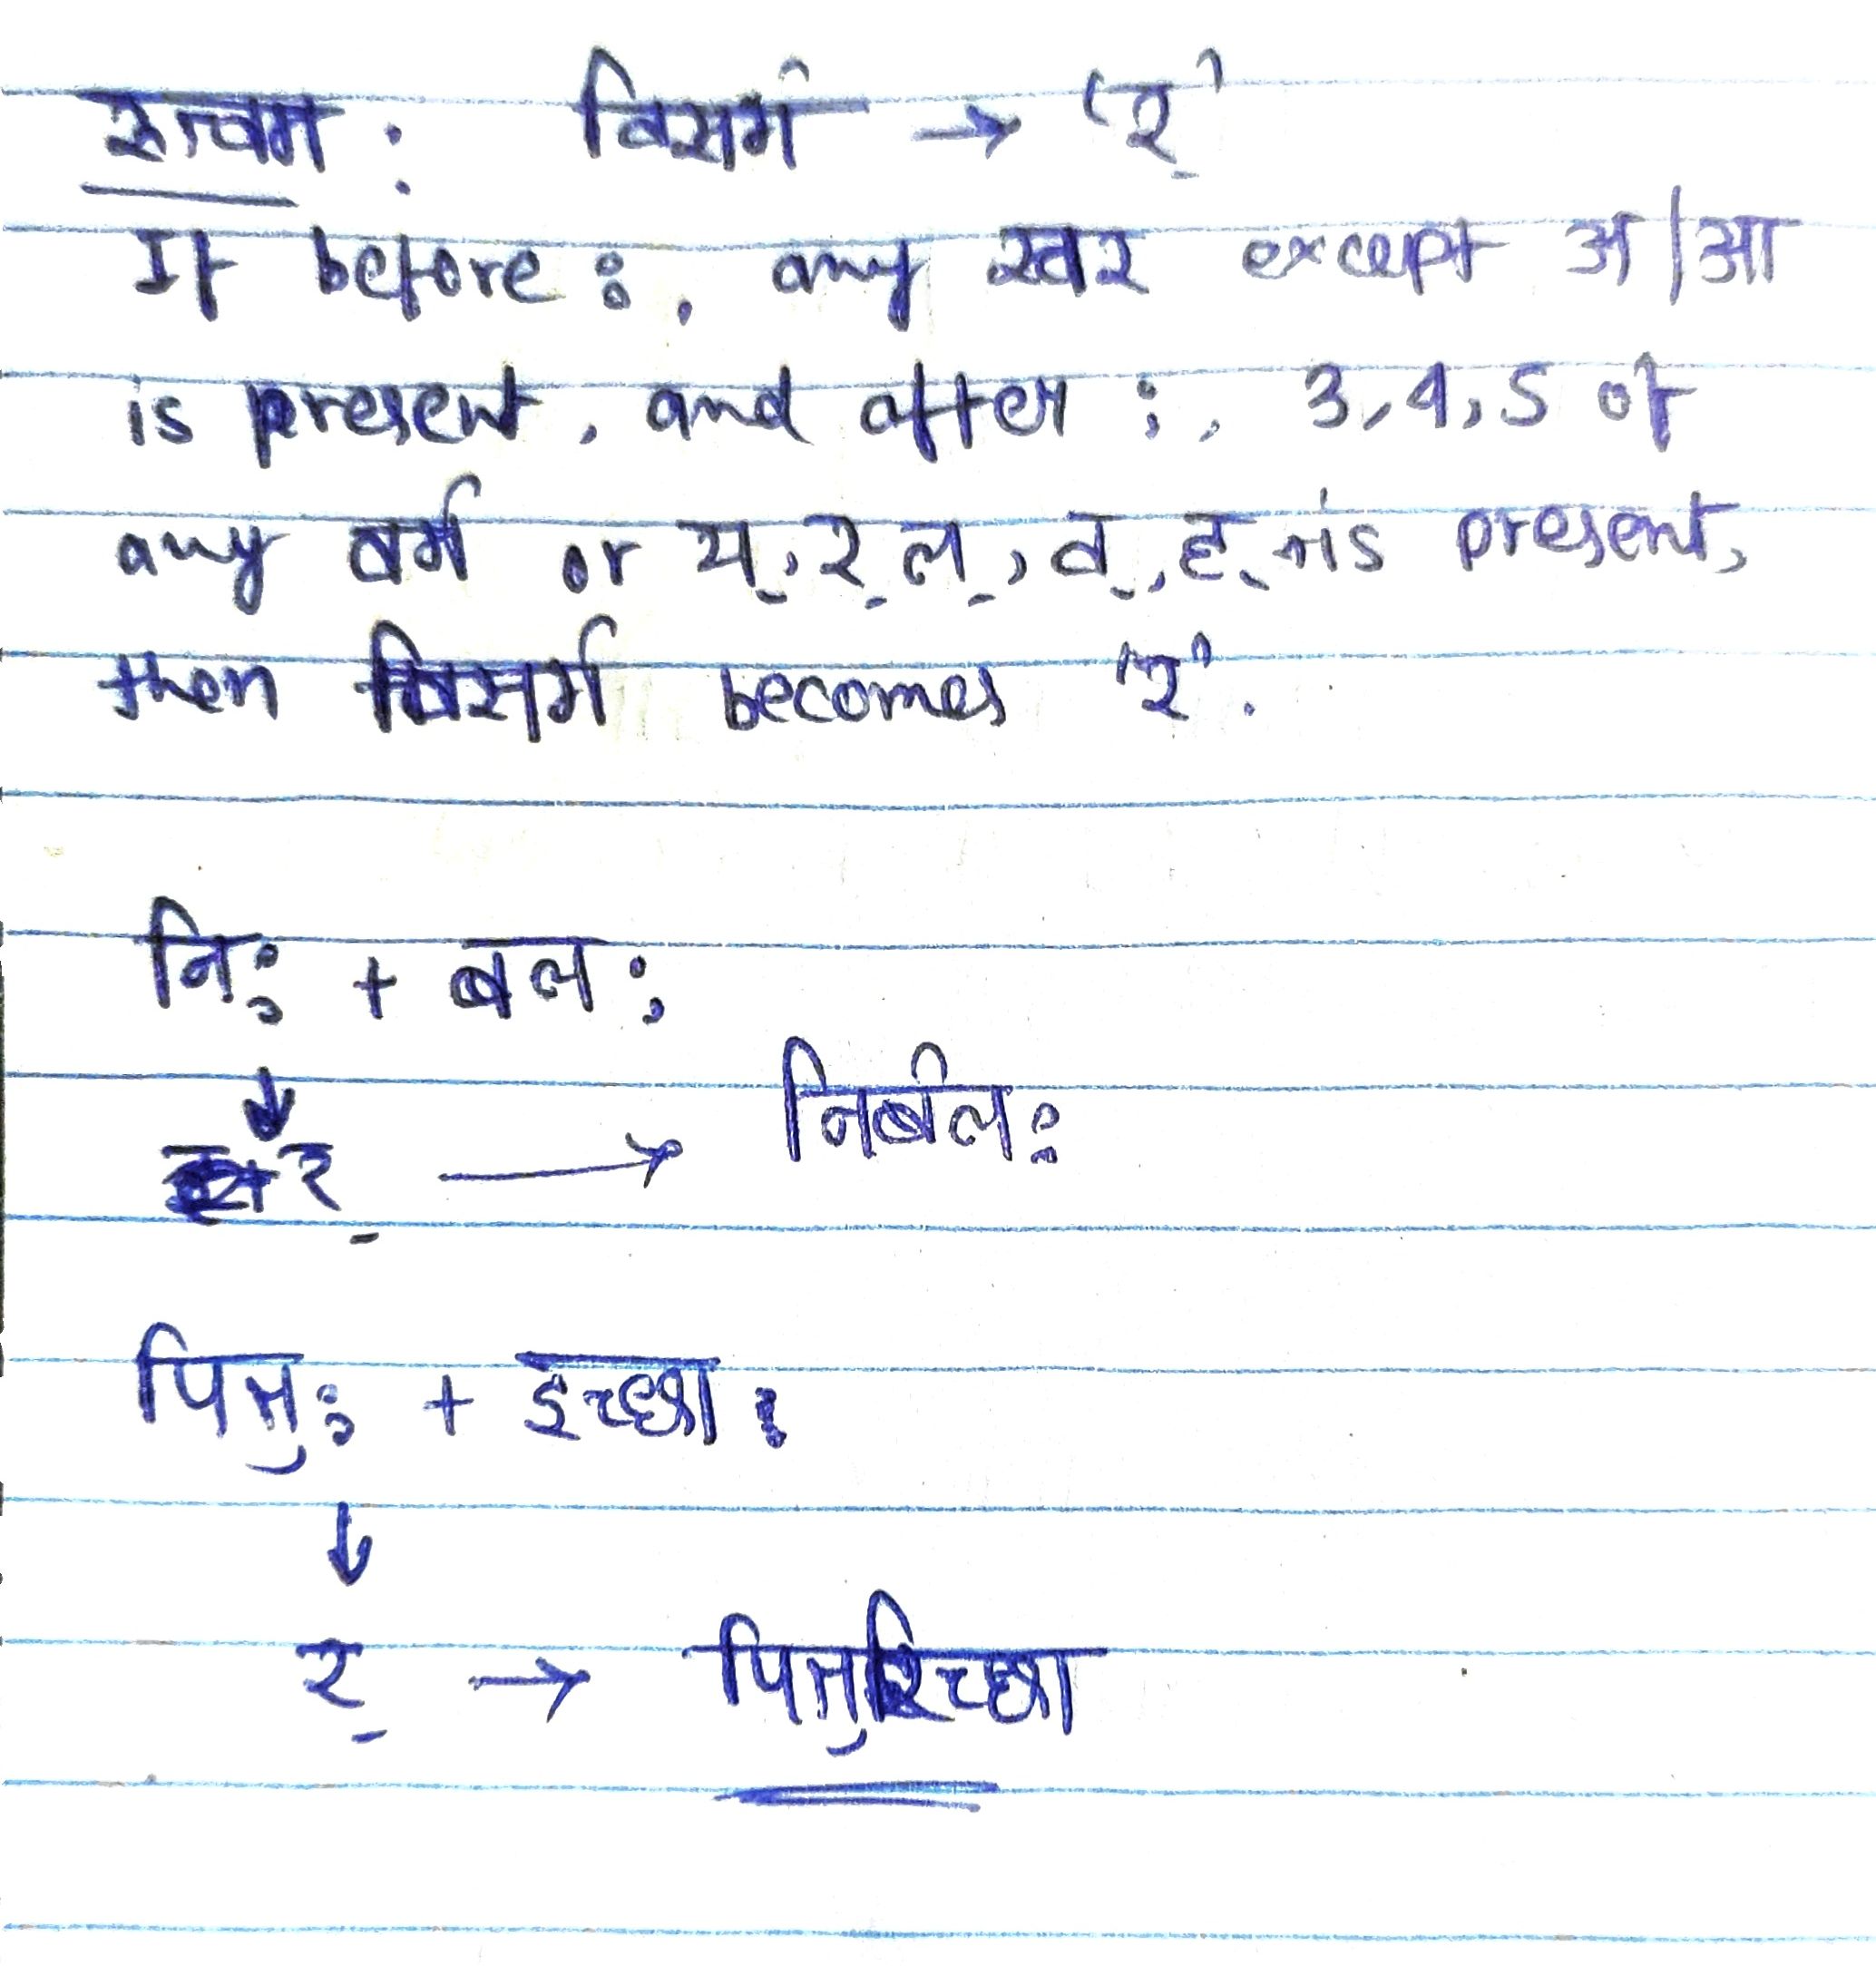 रुत्वम : विसर्ग → 'र्'
If before :, any स्वर except अ/आ
is present, and after :, 3,4,5 of
any वर्ग or य्, र् ल्, व्, ह् is present,
then विसर्ग becomes 'र'.
निः + बलः
↓
र् → निर्बलः
पितुः + इच्छाः
↓
र् → पितुरिच्छा